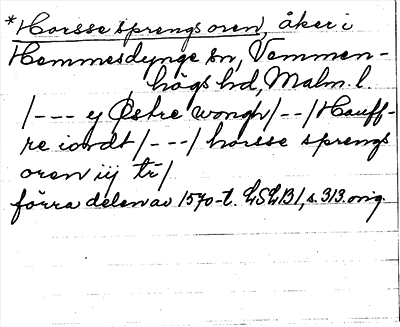 *Horsse sprengs oren, åker i
Hemmesdynge sn, Vemmen-
högs hd, Malm. l.
/--- y Østre wongh/--/Hauff-
re iordt/---/horsse sprengs
oren iij tr/
förra delen av 1570-t. LSLB1, s. 313. orig.